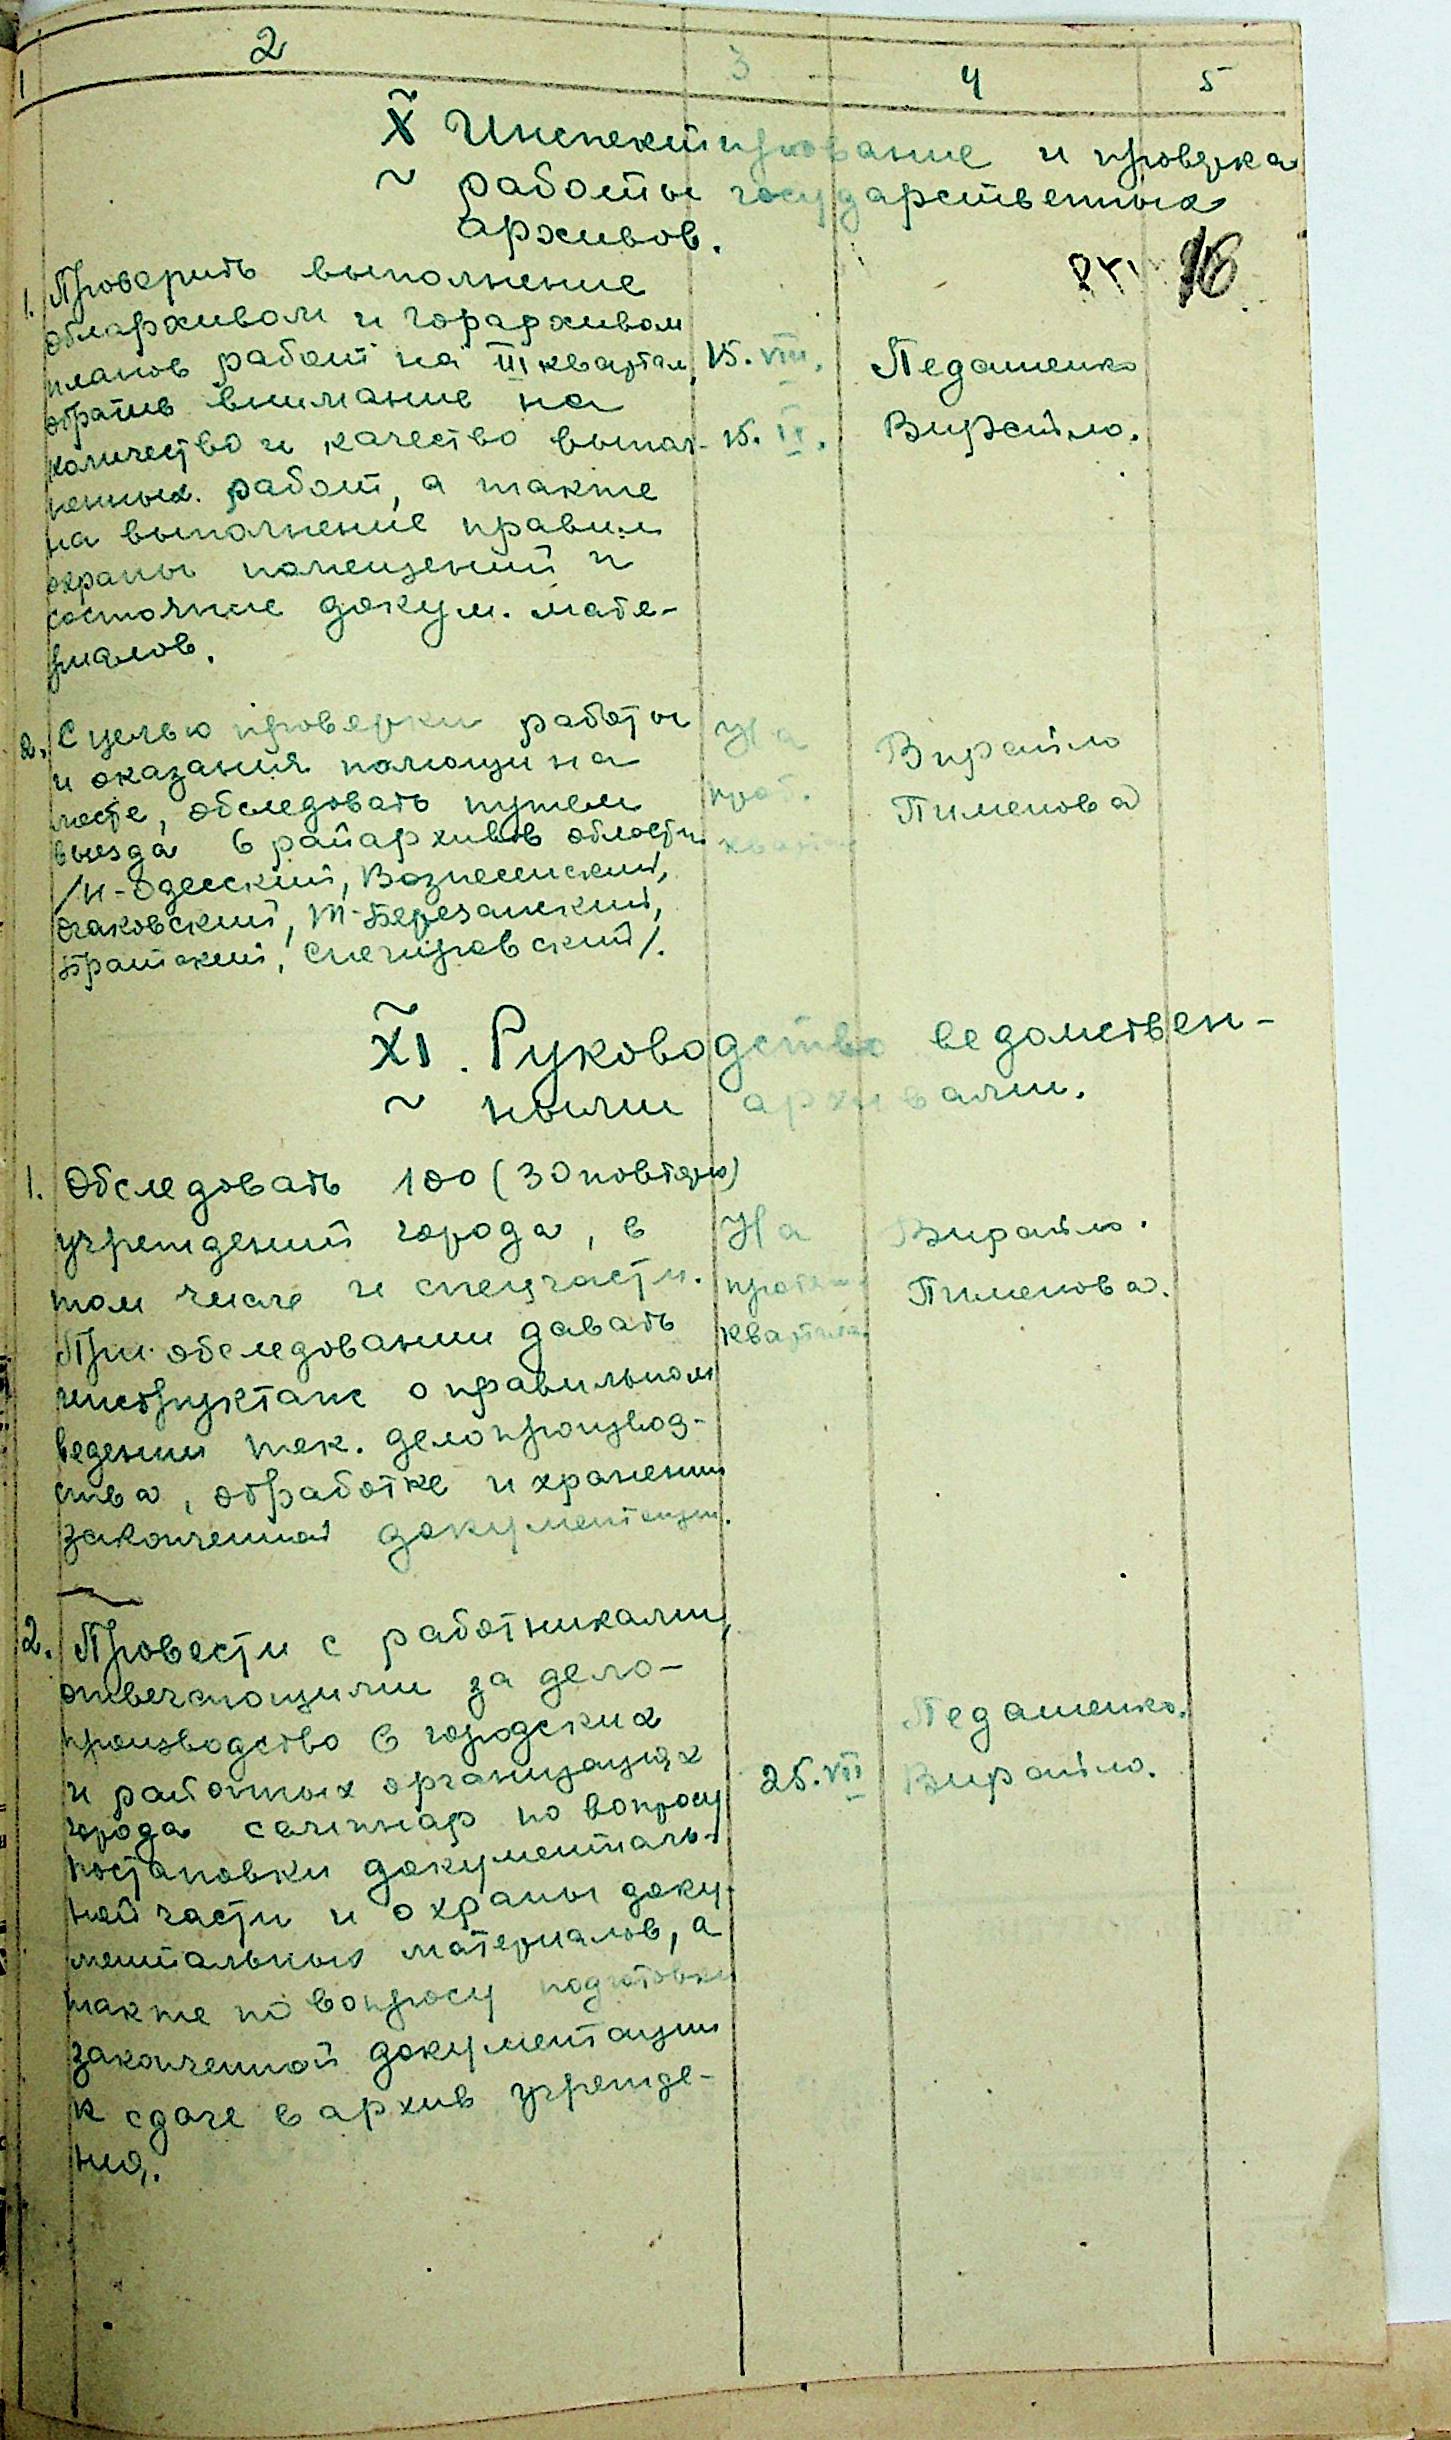 1 2 3 4 5
X Инспектирование и проверка
работы государственных
архивов.
16
1. Проверить выполнение
облархивом и горархивом
планов работ на III квартал, 15. VIII. Педашенко
обратив внимание на
количество и качество выпол- 15. IX. Вирайло.
ненных работ, а также
на выполнение правил
охраны помещений и
состояние докум. мате-
риалов.
2. С целью проверки работы На Вирайло
и оказания помощи на
месте, обследовать путем Пименова
выезда 6 райархивов области
/Н-Одесский, Вознесенский,
Очаковский, Т-Березанский,
Братский, Снегиревский/.
XI. Руководство ведомствен-
ными архивами.
1. Обследовать 100 (30 повторно)
учреждений города, в На Вирайло.
том числе и спецчасти. Пименова.
При обследовании давать квартала
инструктаж о правильном
ведении тек. делопроизвод-
ства, обработке и хранении
законченной документации.
2. Провести с работниками,
отвечающими за дело-
производство в городских Педашенко.
и районных организациях 25. VII Вирайло.
города семинар по вопросу
постановки документаль-
ной части и охраны доку-
ментальных материалов, а
также по вопросу подготовки
законченной документации
к сдаче в архив учрежде-
ния.